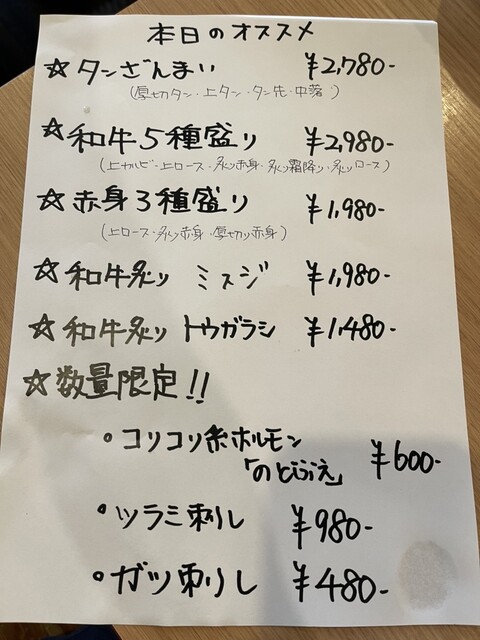 本日のオススメ
☆タンざんまい ¥2,780-
(厚切タン・上タン・タン先・中落)
☆和牛5種盛り ¥2,980-
(上カルビ・上ロース・炙り赤身・炙り霜降り・炙りロース)
☆赤身3種盛り ¥1,980-
(上ロース・炙り赤身・厚切り赤身)
☆和牛炙り ミスジ ¥1,980-
☆和牛炙り トウガラシ ¥1,480-
☆数量限定!!
・コリコリ糸ホルモン
「のどぶえ」 ¥600-
・ツラミ刺し ¥980-
・ガツ刺し ¥480-